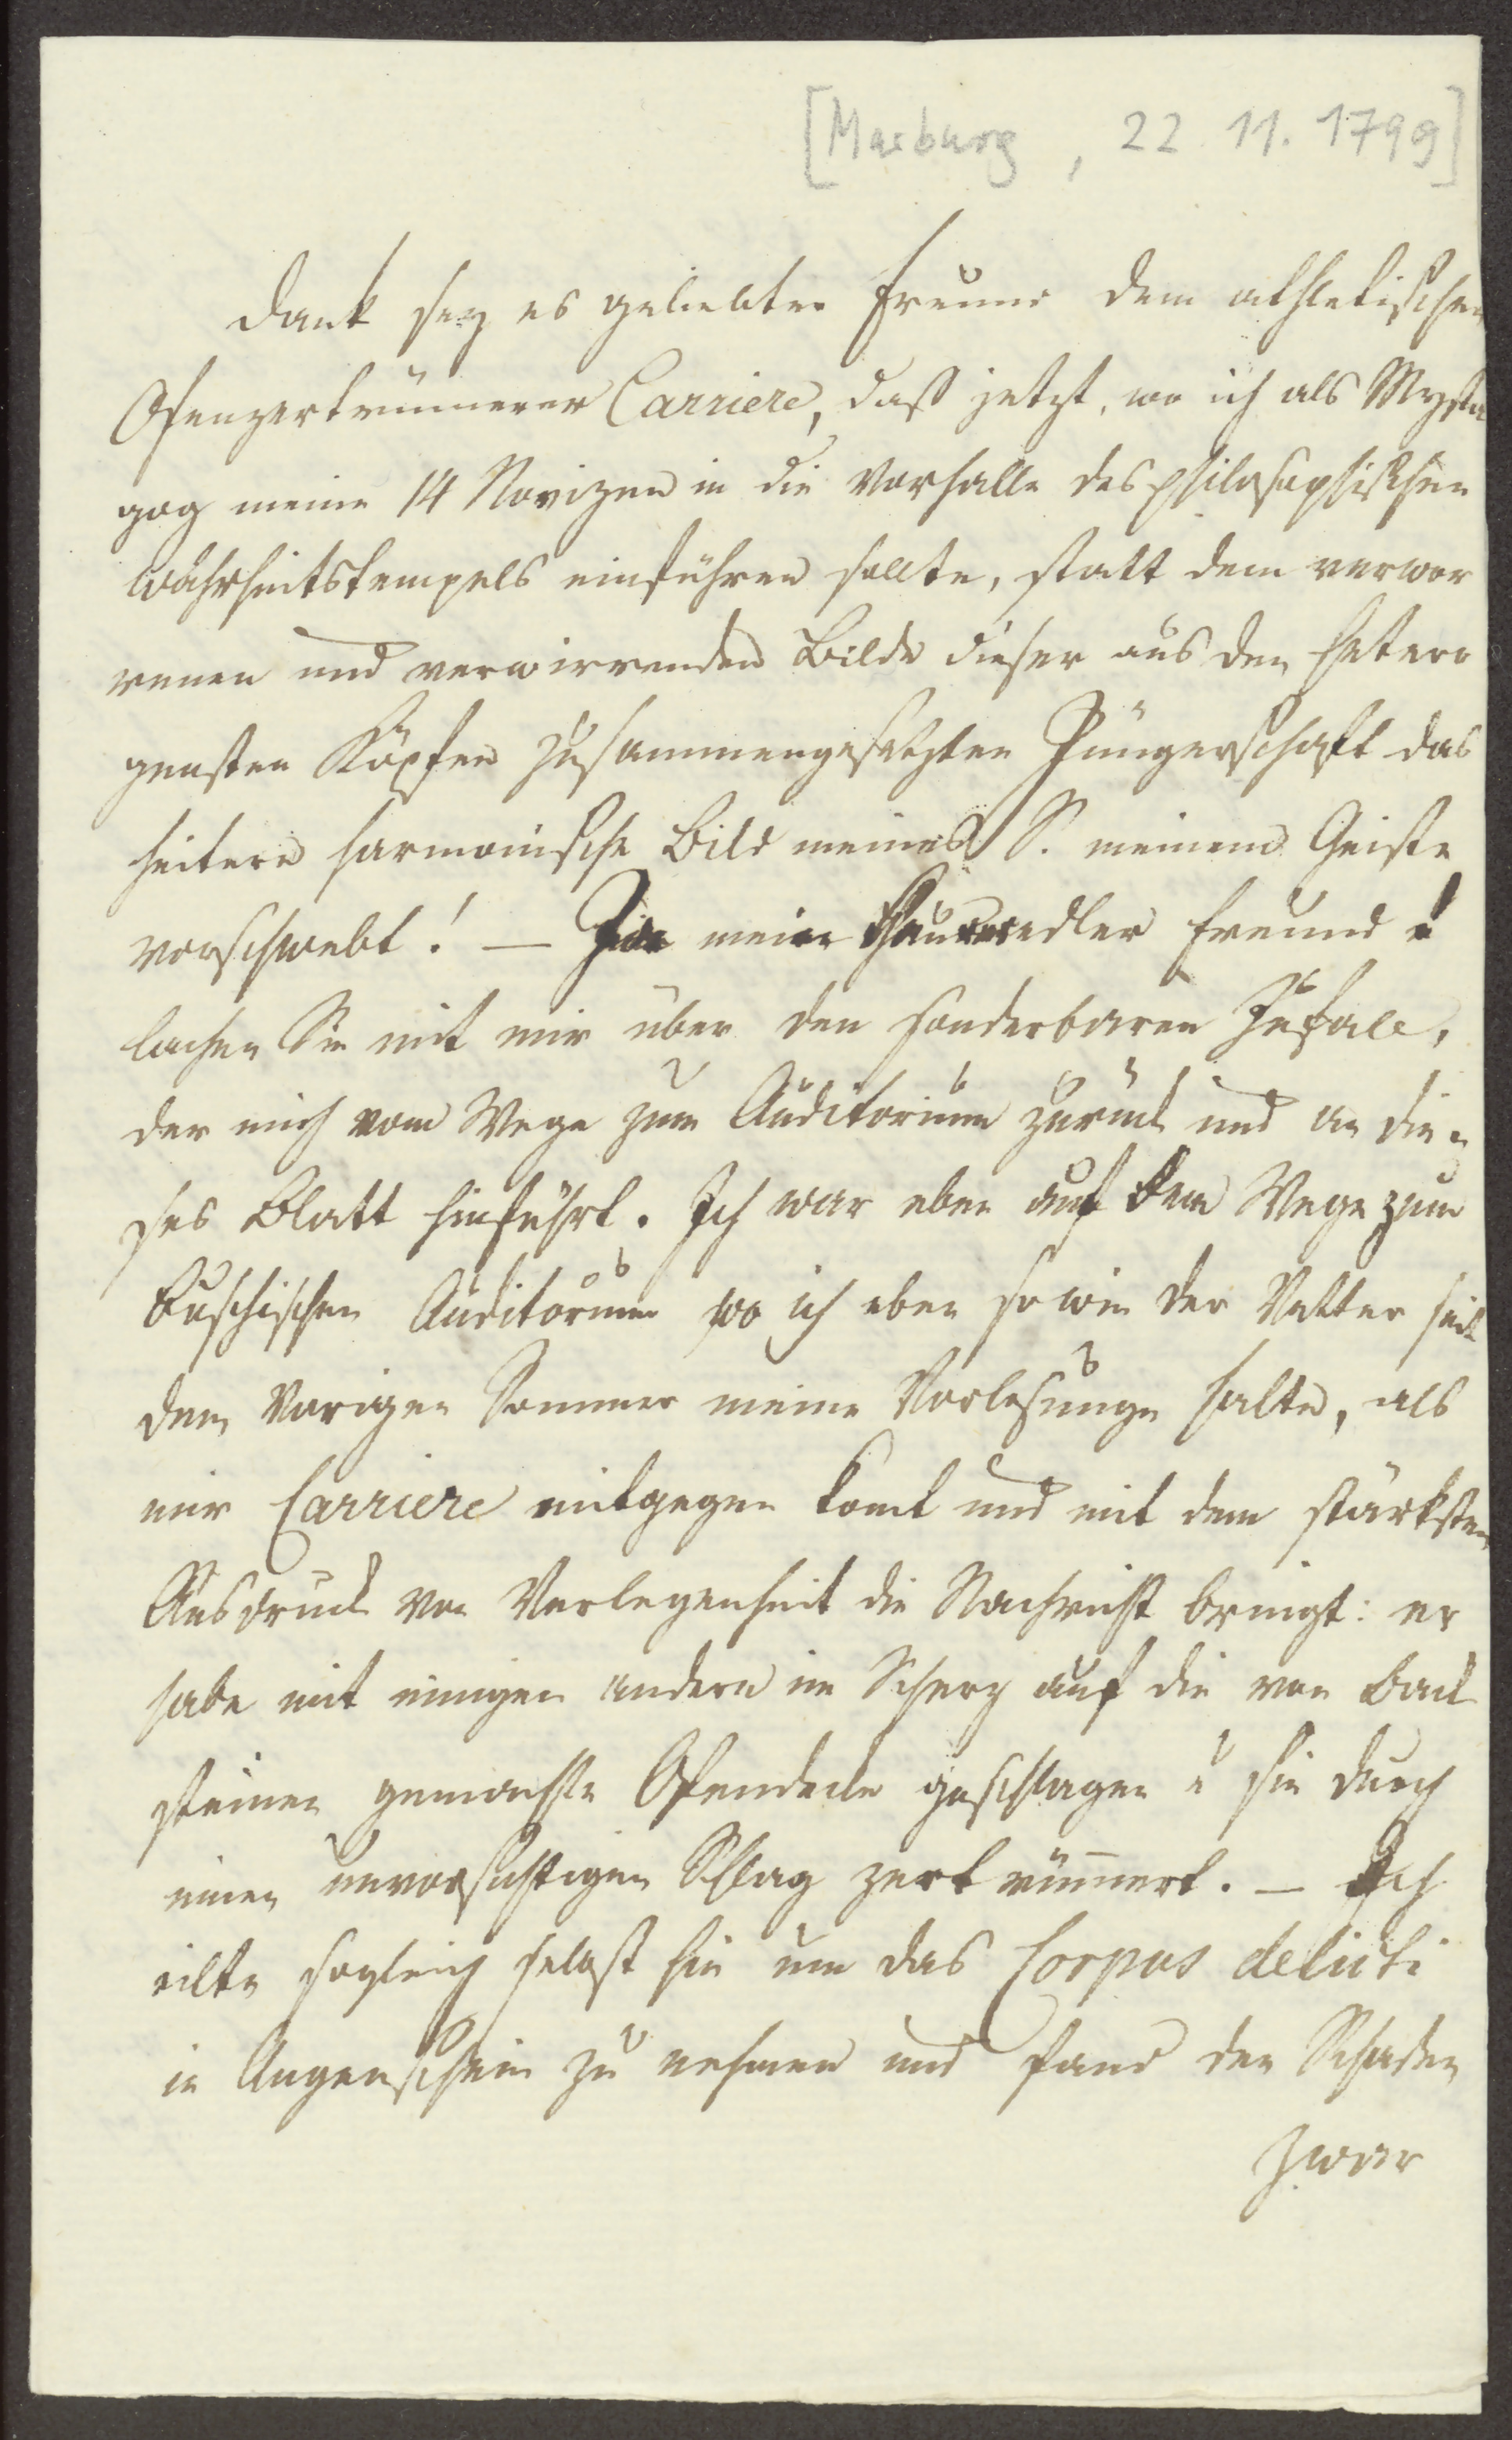 [Marburg, 22. 11. 1799]
Dank sey es geliebter Freund dem athletischen
Ofenzertrümmerer Carriere, daß jetzt, wo ich als Mysta
gog meine 14 Novizen in die Vorhalle des philosophischen
Wahrheitstempels einführen sollte, statt dem verwor
renen und verwirrenden Bilde dieser aus den hetero
gensten Köpfen zusammengesetzten Jüngerschaft das
heitere harmonische Bild meines S. meinem Geiste
vorschwebt! — mein edler Freund!
lachen Sie mit mir über den sonderbaren Zufall,
der mich vom Wege zum Auditorium zurück und an die-
ses Blatt hinführt. Ich war eben auf dem Wege zum
Buschischen Auditorium wo ich eben so wie der Vetter seit
dem vorigen Sommer meine Vorlesunge halte, als
mir Carriere entgegen komt und mit dem stärksten
Ausdruck von Verlegenheit die Nachricht bringt: er
habe mit einigen andern im Scherz auf die von Back
steinen gemachte Ofendecke geschlagen u sie durch
einen unvorsichtigen Schlag zertrümmert. — Ich
eilte sogleich selbst hin um das Corpus delicti
in Augenschein zu nehmen und fand den Schaden
zwar